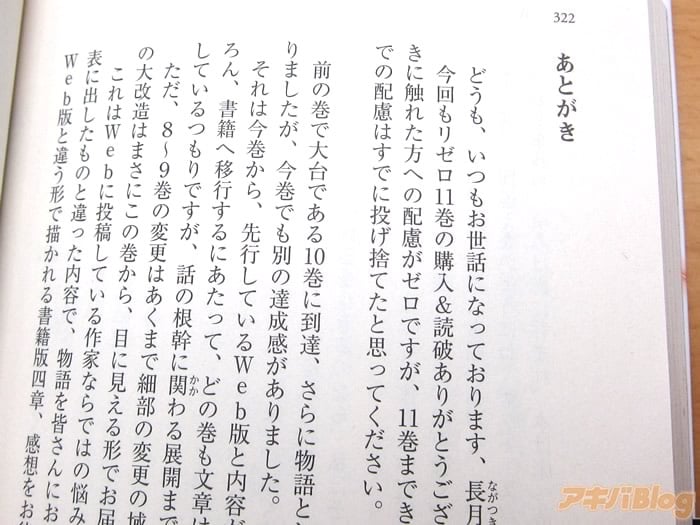 322
あとがき
どうも、いつもお世話になっております、長月
今回もリゼロ11巻の購入&読破ありがとうござ
きに触れた方への配慮がゼロですが、11巻まできて
での配慮はすでに投げ捨てたと思ってください。
前の巻で大台である10巻に到達、さらに物語と
りましたが、今巻でも別の達成感がありました。
それは今巻から、先行しているWeb版と内容が
ろん、書籍へ移行するにあたって、どの巻も文章は
しているつもりですが、話の根幹に関わる展開まで
ただ、8〜9巻の変更はあくまで細部の変更の域
の大改造はまさにこの巻から、目に見える形でお届
これはWebに投稿している作家ならではの悩み
表に出したものと違った内容で、物語を皆さんにお
Web版と違う形で描かれる書籍版四章、感想をお
アキバBlog